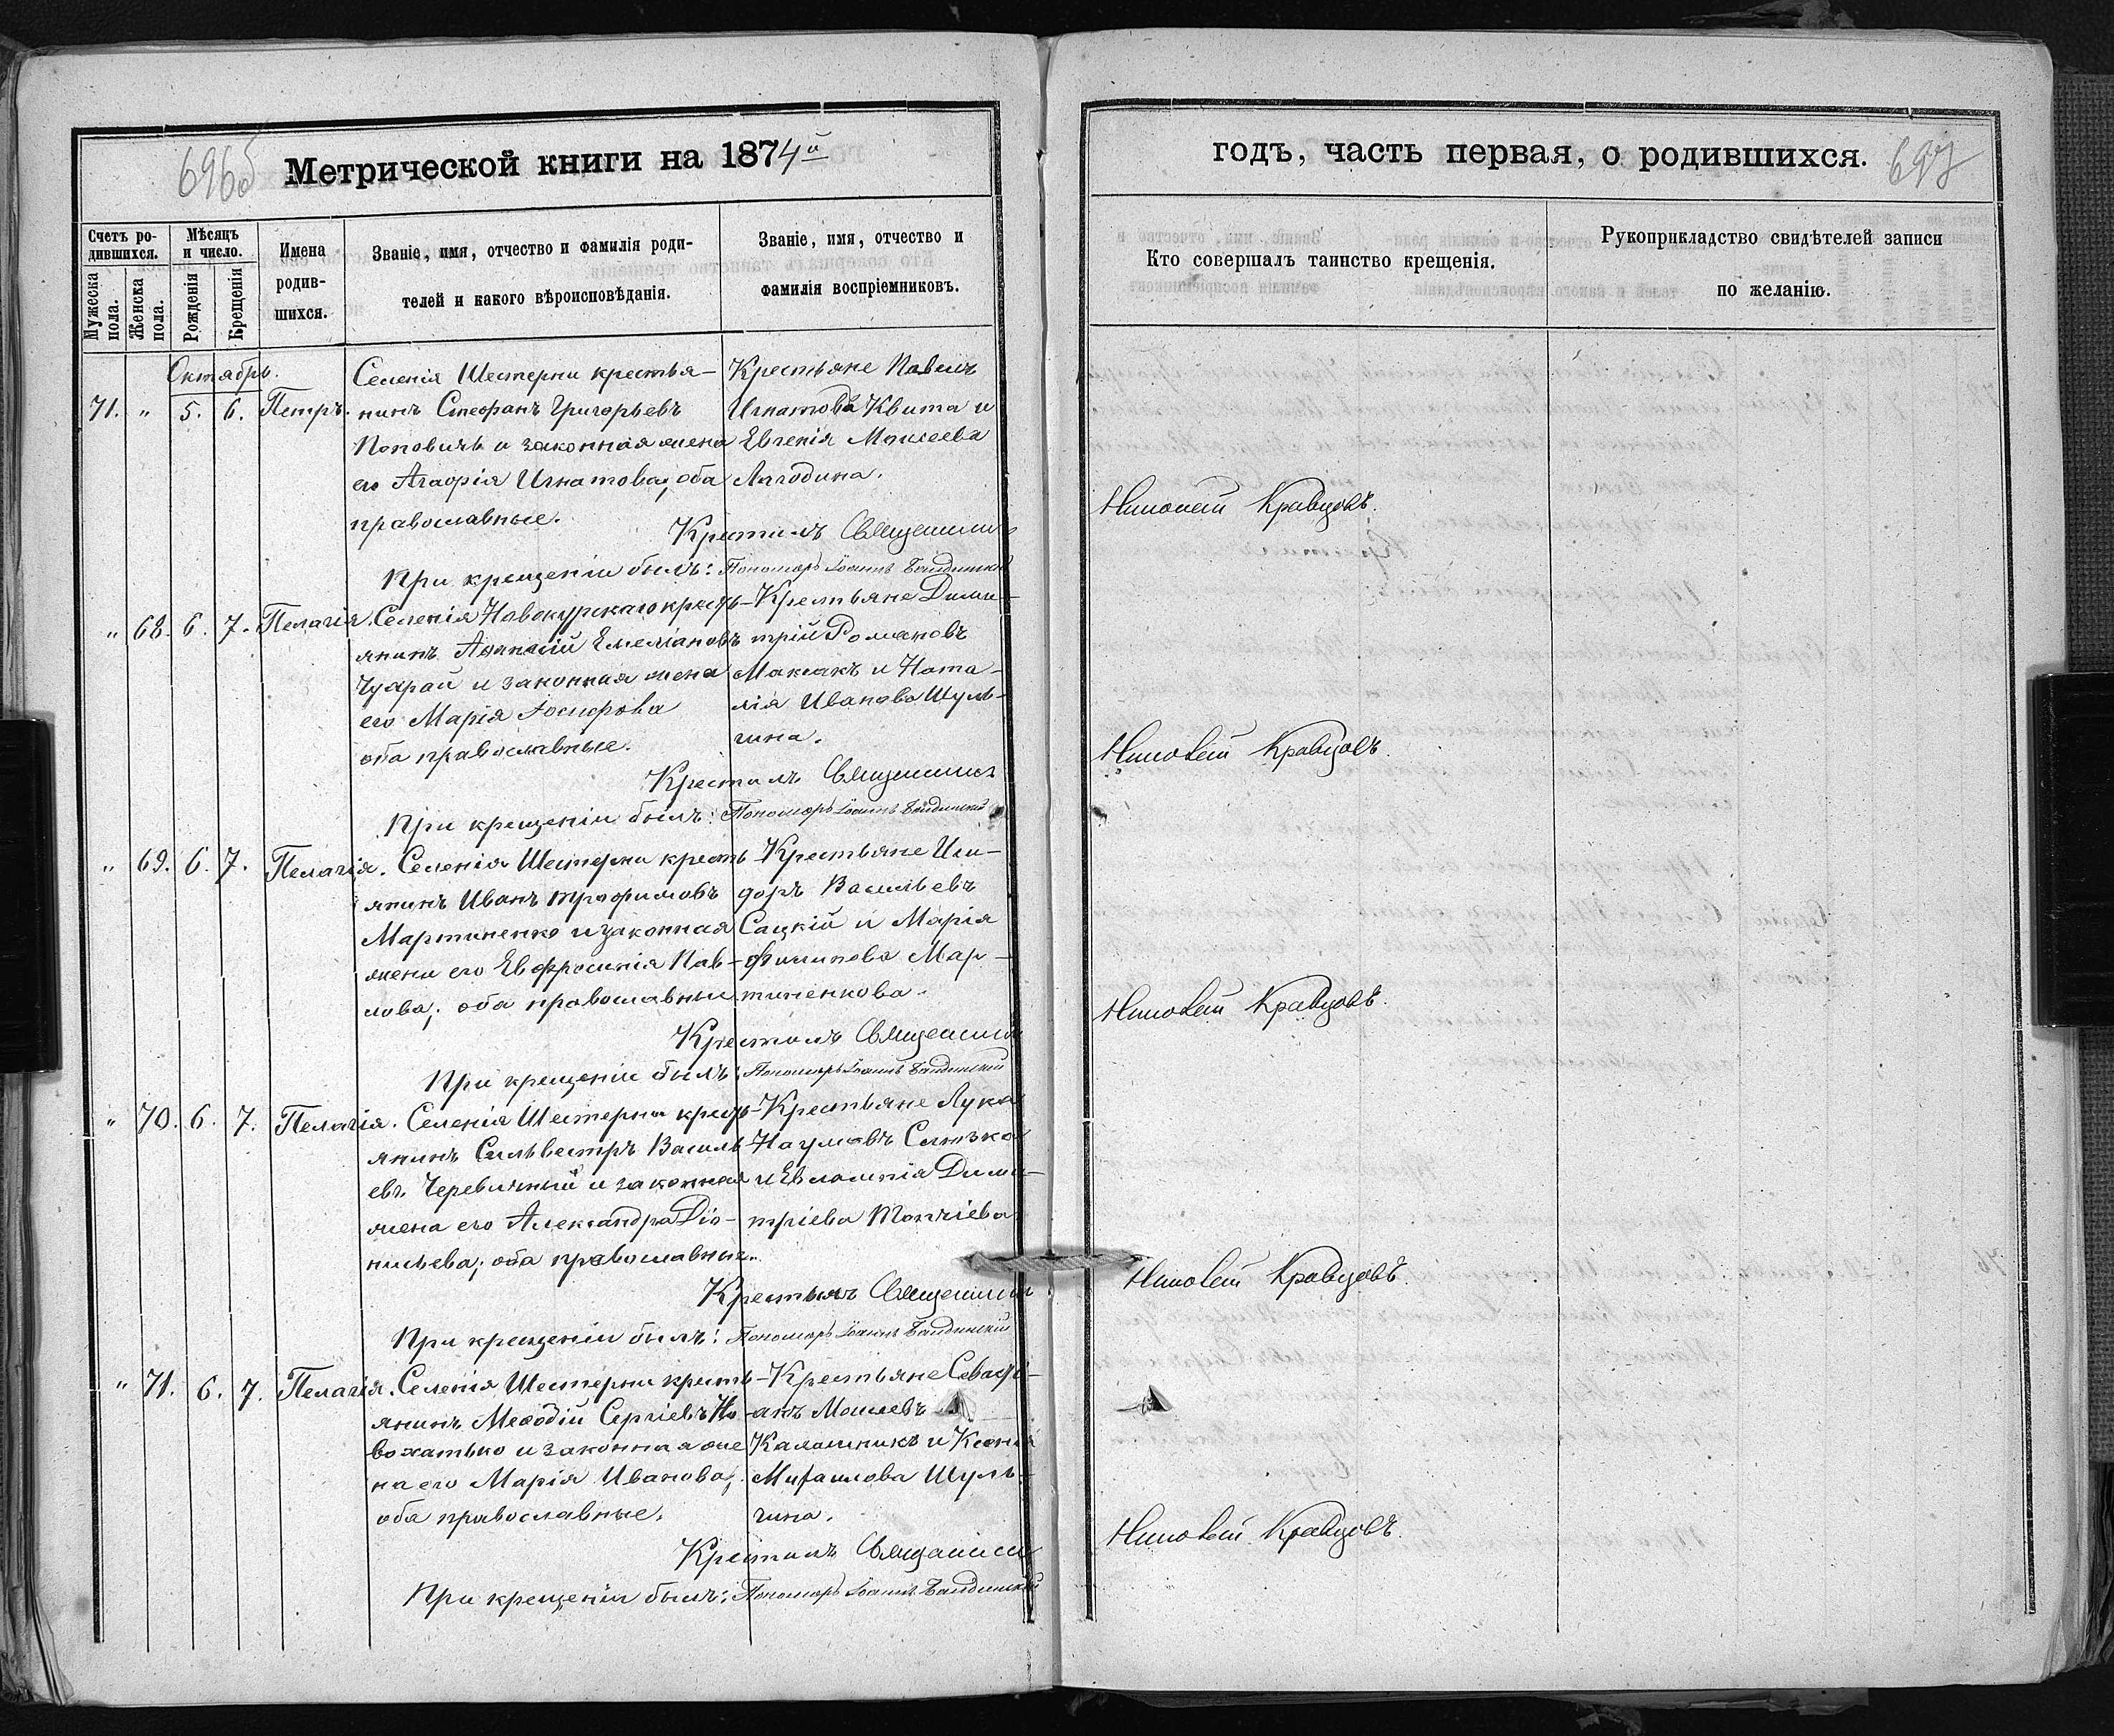 696об
Метрической книги на 1874й
годъ, часть первая, о родившихся.
697
Счетъ ро-
дившихся.
Мужеска
пола.
Женска
пола.
Мѣсяцъ
и число.
Рожденія
Крещенія
Имена
родив-
шихся.
Званіе, имя, отчество и фамилія роди-
телей и какого вѣроисповѣданія.
Званіе, имя, отчество и
фамилія воспріемниковъ.
Кто совершалъ таинство крещенія.
Рукоприкладство свидѣтелей записи
по желанію.
Октябрь.
71. " 5. 6. Петръ.
Селенія Шестерни крестья-
нинъ Стефанъ Григорьевъ
Поповичъ и законная жена
его Агафія Игнатова; оба
православные.
Крестьяне Павелъ
Игнатовъ Квита и
Евгенія Моисеева
Лягодина.
Крестилъ Священникъ
Кравцовъ.
При крещеніи былъ: Пономарь Іоаннъ
" 68. 6. 7. Пелагія.
Селенія Новокурскаго кресть-
янинъ Афанасій Емеліановъ
Чухрай и законная жена
его Марія Іосифова
оба православные.
Крестьяне Дими-
трій Романовъ
Максакъ и Ната-
лія Иванова Шуль-
гина.
Крестилъ Священникъ
Кравцовъ.
При крещеніи былъ: Пономарь Іоаннъ
" 69. 6. 7. Пелагія.
Селенія Шестерни кресть-
янинъ Иванъ Трофимовъ
Мартиненко и законная
жена его Евфросинія Пав-
лова; оба православные.
Крестьяне Иси-
доръ Васильевъ
Сацкій и Марія
Филипова Мар-
тиненкова.
Крестилъ Священникъ
Кравцовъ.
При крещеніи былъ: Пономарь Іоаннъ
" 70. 6. 7. Пелагія.
Селенія Шестерни кресть-
янинъ Сильвестръ Василь-
евъ Черевичный и законная
жена его Александра Діо-
нисьева; оба православные.
Крестьяне Лука
Наумовъ
и Евлампія Дими-
тріева
Крестилъ Священникъ
Кравцовъ.
При крещеніи былъ: Пономарь Іоаннъ
" 71. 6. 7. Пелагія.
Селенія Шестерни кресть-
янинъ Мефодій Сергіевъ Но-
вохатько и законная же-
на его Марія Иванова;
оба православные.
Крестьяне Севасті-
анъ Моисеевъ
Калашникъ и Ксенія
Михаилова Шуль-
гина.
Крестилъ Священникъ
Кравцовъ.
При крещеніи былъ: Пономарь Іоаннъ